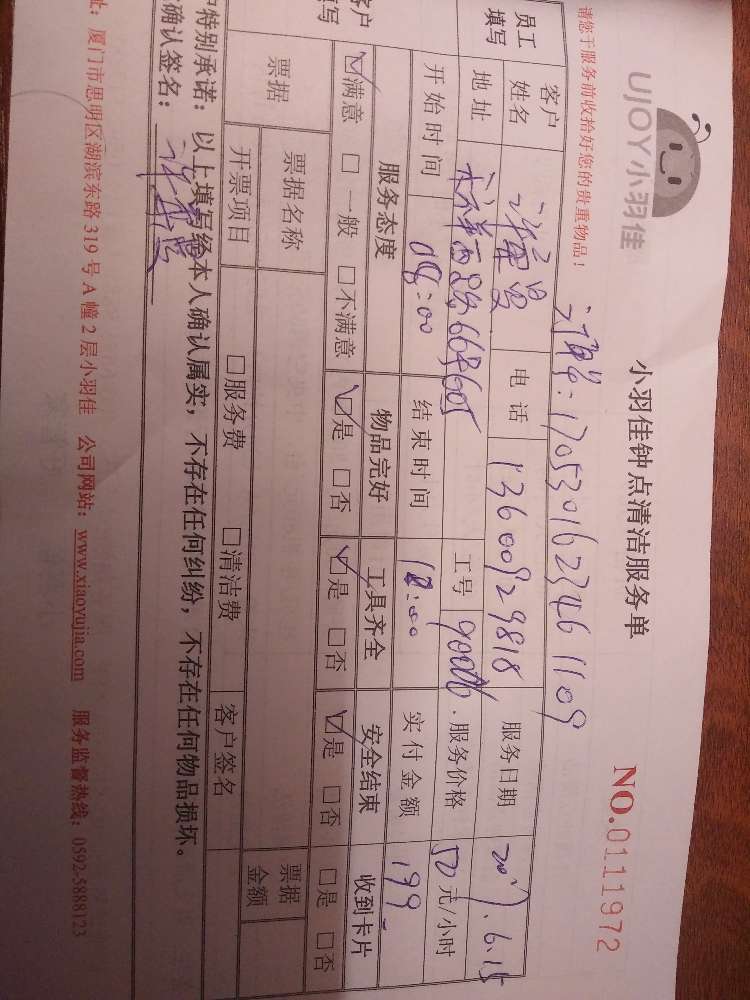 UJOY小羽佳
小羽佳钟点清洁服务单
NO.0111972
请您于服务前收拾好您的贵重物品！
1705301623461109
员工填写
客户姓名
电话 13600929818
服务日期 2017.6.15
地址
工号
服务价格 50元/小时
开始时间
结束时间
实付金额 199
客户填写
服务态度 物品完好 工具齐全 安全结束 收到卡片
☑满意 □一般 □不满意 ☑是 □否 ☑是 □否 ☑是 □否 □是 □否
票据
票据名称
票据金额
开票项目 □服务费 □清洁费 客户签名
特别承诺：以上填写经本人确认属实，不存在任何纠纷，不存在任何物品损坏。
确认签名：
址：厦门市思明区湖滨东路319号A幢2层小羽佳 公司网站：www.xiaoyujia.com 服务监督热线：0592-5888123